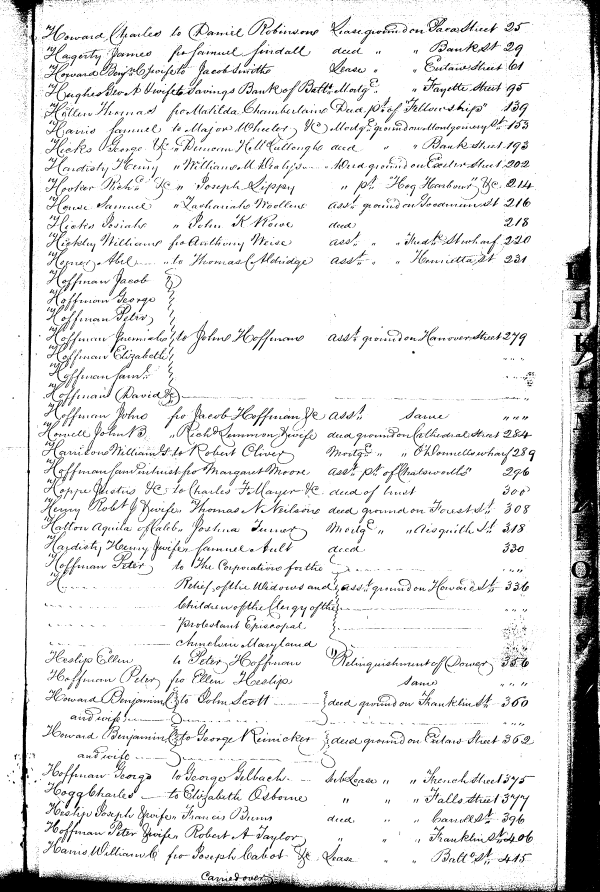 Howard Charles to Daniel Robinson Lease ground on Paca Street 25
Hagerty James fr Samuel Tindall deed " " Bank St 29
Howard Benj C & wife to Jacob Smith Lease " " Eutaw Street 61
Hughes Geo A & wife to Savings Bank of Balto Mortge " " Fayette Street 95
Hillen Thomas fr Matilda Chamberlain Deed pt of "Fellowship" 139
Harris Samuel to Major Wheeler &C Mortge ground on Montgomery St 153
Hicks George &C " Duncan deed " " Bank Street 193
Hardisty Henry " William M Deed ground on Exeter Street 202
Hooker Richd &C " Joseph Lippy " pt "Hog Harbour" &C 214
House Samuel " Zachariah Woollen asst ground on Goodman St 216
Hicks Josiah " John K Rowe deed 218
Hickley William fr Anthony Weise asst " " Fredk St wharf 220
Horner Abel to Thomas C Aldridge asst " " Henrietta St 231
Hoffman Jacob
Hoffman George
Hoffman Peter
Hoffman Jeremiah to John Hoffman asst ground on Hanover Street 279
Hoffman Elizabeth " "
Hoffman Saml " "
Hoffman David &C " "
Hoffman John fr Jacob Hoffman &C asst same " " "
Howell John B " Richd Lemmon & wife deed ground on Cathedral Street 284
Harrison William G to Robert Oliver Mortge " " O'Donnells wharf 289
Hoffman Saml in trust fr Margaret Moore asst pt of "Chatsworth" 296
Hoppe Justus &C to Charles F Mayer &C deed of trust 300
Henry Robt J & wife " Thomas N Neilson deed ground on Forest St 308
Hatton Aquila of Caleb " Joshua Turner Mortge " " Aisquith St 318
Hardisty Henry & wife " Samuel Ault deed 330
Hoffman Peter to The Corporation for the
H Relief of the Widows and asst ground on Howard St 336
Children of the Clergy of the " "
Protestant Episcopal
Church in Maryland
Heslip Ellen to Peter Hoffman Relinquishment of Dower 356
Hoffman Peter fr Ellen Heslip same " "
Howard Benjamin C to John Scott deed ground on Franklin St 360
and wife " "
Howard Benjamin C to George Reinicker deed ground on Eutaw Street 362
and wife
Hoffman George to George Gelbach Sub Lease " " French Street 375
Hogg Charles to Elizabeth Osborne " " Falls Street 377
Heslip Joseph & wife " Francis Burns deed " Canal St 396
Hoffman Peter & wife " Robert A Taylor " " Franklin St 406
Harris William C fr Joseph Cabot &C Lease " Balto St 415
Carried over